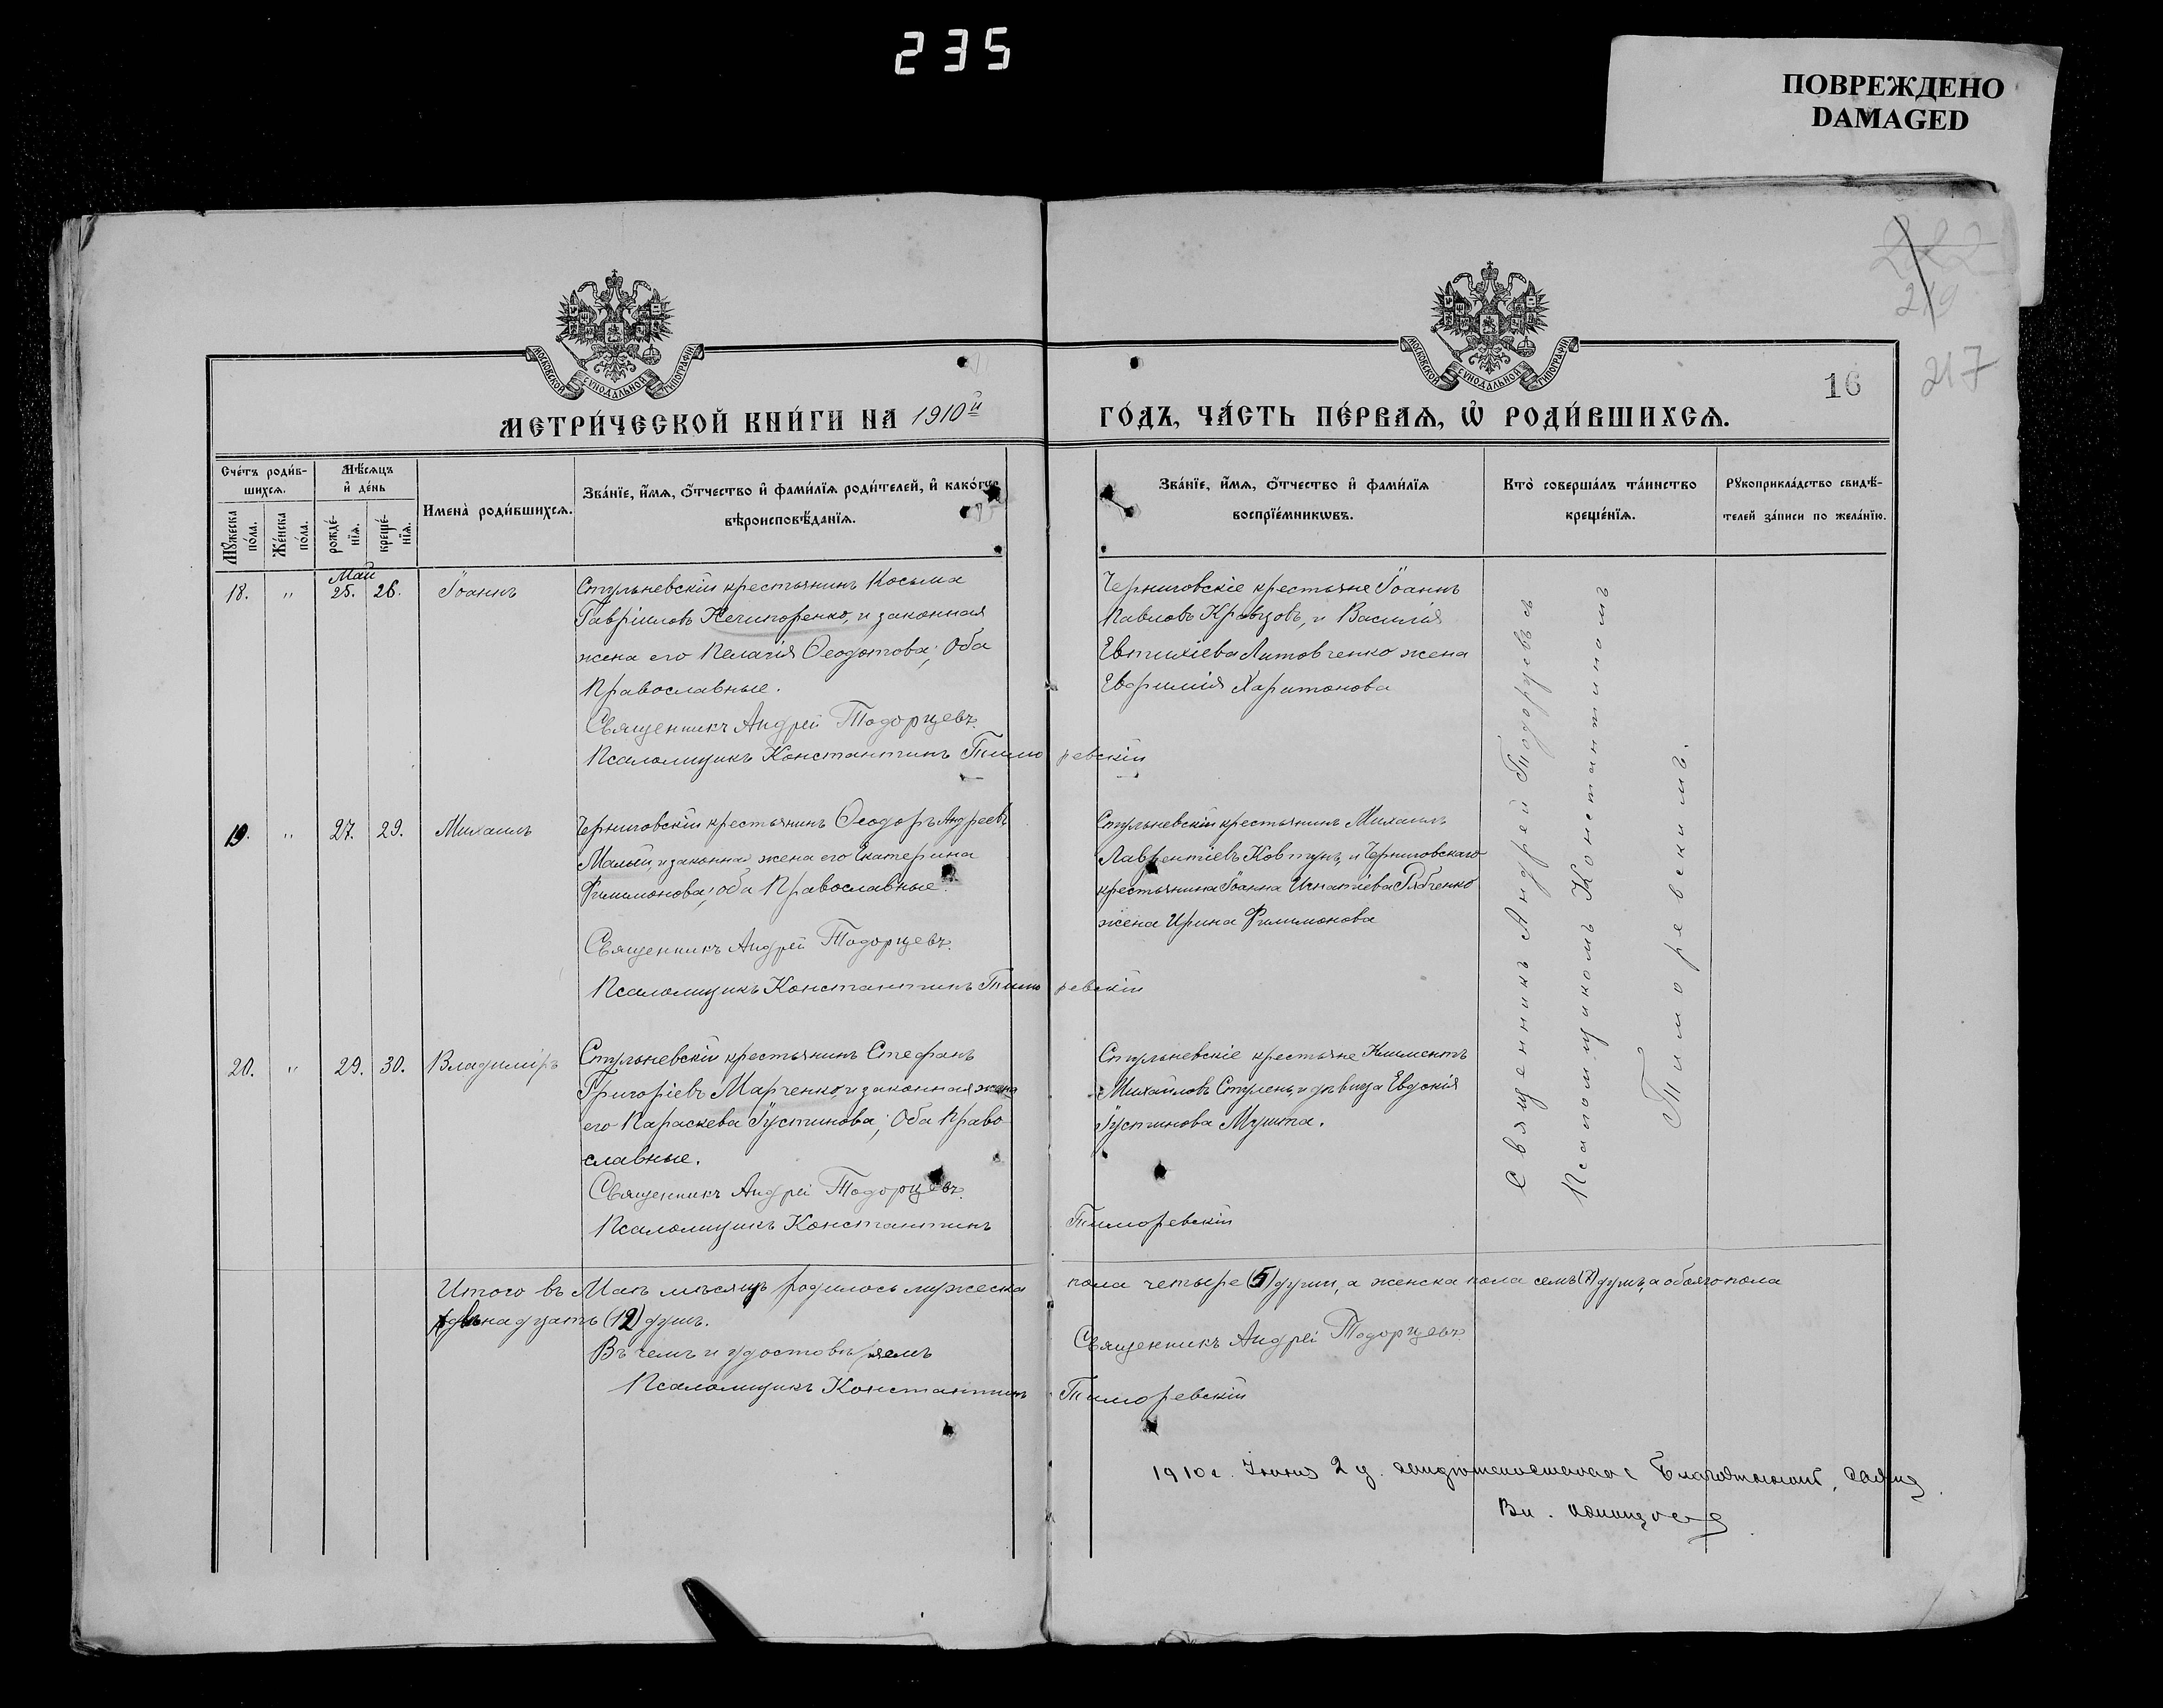 235
ПОВРЕЖДЕНО
DAMAGED
222
219
217
16
МОСКОВСКОЙ СѴНОДАЛЬНОЙ ТИПОГРАФІИ
МОСКОВСКОЙ СѴНОДАЛЬНОЙ ТИПОГРАФІИ
МЕТРИ́ЧЕСКОЙ КНИ́ГИ НА 1910й
ГО́ДЪ, ЧА́СТЬ ПЕ́РВАѦ, Ѡ҆ РОДИ́ВШИХСѦ.
Сче́тъ роди́в-
шихсѧ.
Мꙋ́жеска по́ла.
Же́нска по́ла.
Мѣ́сѧцъ
и҆ де́нь
рожде́-
нїѧ.
креще́-
нїѧ.
Имена̀ роди́вшихсѧ.
Зва́нїе, и҆́мѧ, ѻ҆́тчество и҆ фами́лїѧ роди́телей, и҆ како́гѡ
вѣроисповѣ́данїѧ.
Зва́нїе, и҆́мѧ, ѻ҆́тчество и҆ фами́лїѧ
воспрїе́мникѡвъ.
Кто̀ соверша́лъ та́инство
креще́нїѧ.
Рꙋкоприкла́дство свидѣ́-
телей за́писи по жела́нїю.
Май
18. " 25. 26. Іоаннъ
Стульневскій крестьянинъ Косьма
Гавріиловъ Нечипоренко, и законная
жена его Пелагія Ѳеодотова; Оба
Православные.
Священникъ Андрей Тодорцевъ.
Псаломщикъ Константинъ Тиморевскій
Черниговскіе крестьяне Іоаннъ
Павловъ Кравцовъ, и Василія
Евтихіева Литовченко жена
Евфимія Харитонова
19. " 27. 29. Михаилъ
Черниговскій крестьянинъ Ѳеодоръ Андреевъ
Малый, и законная жена его Екатерина
Филимонова; оба Православные.
Священникъ Андрей Тодорцевъ.
Псаломщикъ Константинъ Тиморевскій
Стульневскій крестьянинъ Михаилъ
Лаврентіевъ Ковтунъ, и Черниговскаго
крестьянина Іоанна Игнатіева Рябченко
жена Ирина Филимонова
20. " 29. 30. Владиміръ
Стульневскій крестьянинъ Стефанъ
Григоріевъ Марченко, и законная жена
его Параскева Іустинова; Оба Право
славные.
Священникъ Андрей Тодорцевъ.
Псаломщикъ Константинъ Тиморевскій
Стульневскіе крестьяне Климентъ
Михайловъ Стулень, и дѣвица Евдокія
Іустинова Мушта.
Священникъ Андрей Тодорцевъ съ
Псаломщикомъ Константиномъ
Тиморевскимъ.
Итого въ Маѣ мѣсяцѣ родилось мужеска пола четыре (5) души, а женска пола семь (7) душъ, а обоего пола
двѣнадцать (12) душъ.
Въ чемъ и удостовѣряемъ
Священникъ Андрей Тодорцевъ.
Псаломщикъ Константинъ Тиморевскій
1910 г. Іюня 2 д. Благочинный,
Вл.